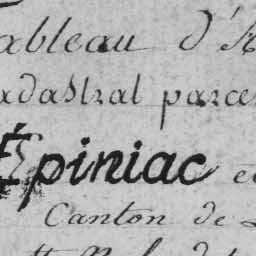 ableau d'A
adastral parce
Épiniac e
Canton de